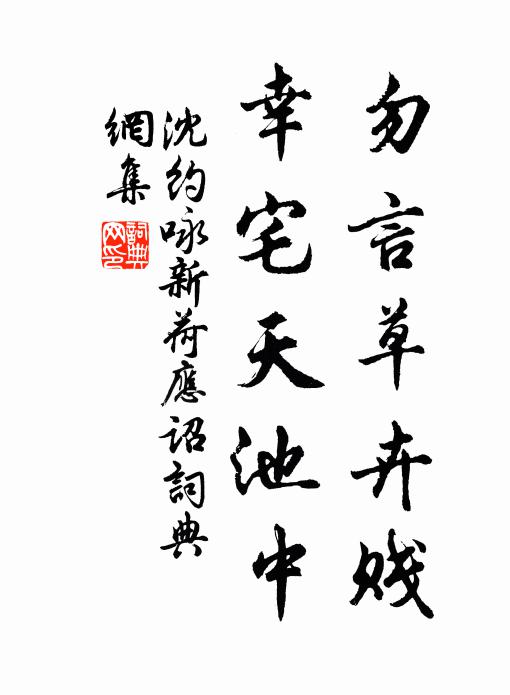 勿言草卉贱
幸宅天池中
沈约咏新荷應詔詞典
網集
詞典
网印